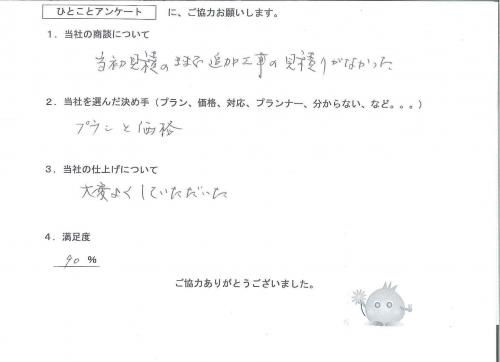 ひとことアンケート に、ご協力お願いします。
1．当社の商談について
当初見積のままで追加工事の見積りがなかった
2．当社を選んだ決め手（プラン、価格、対応、プランナー、分からない、など。。。）
プランと価格
3．当社の仕上げについて
大変よくしていただいた
4．満足度
90 %
ご協力ありがとうございました。